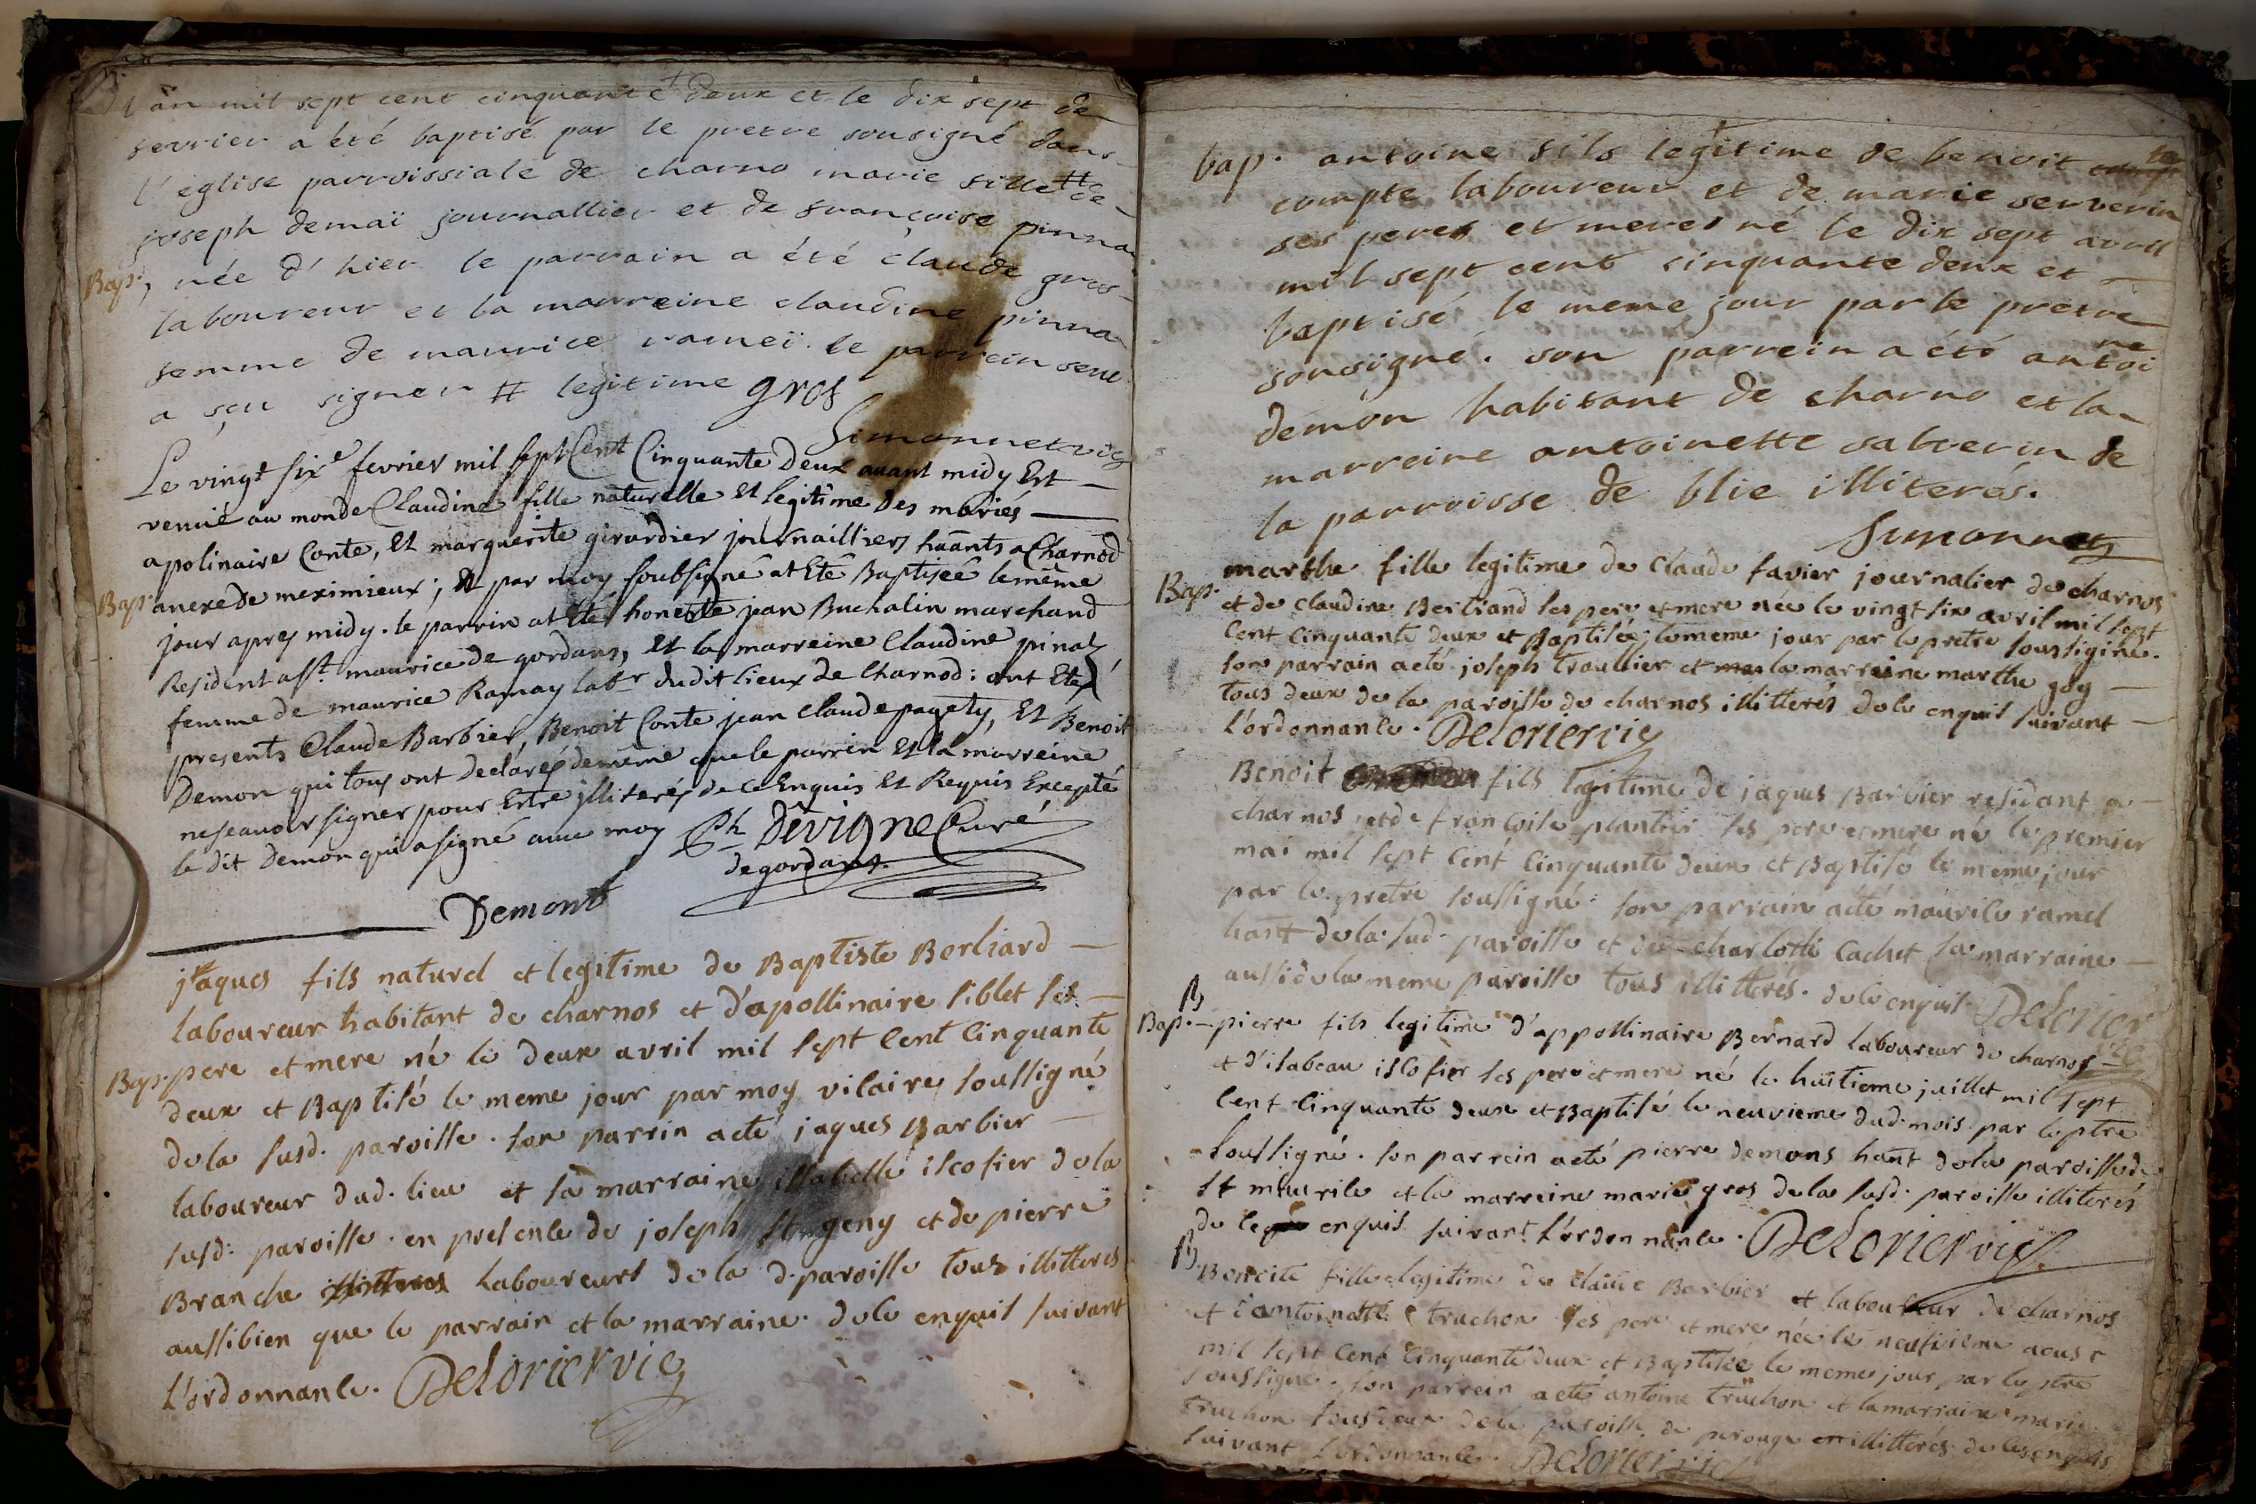 l'an mil sept cent cinquante deux et le dix sept de
fevrier a été baptisé par le pretre sousigné dans
l'église parroissiale de charno marie fille # de
joseph demaï journallier et de françoise pinna
Bap. née d'hier le parrain a été claude gros
laboureur et la marreine claudine pinna
femme de maurice rameï. le parrein seul
a sçu signer # legitime gros
Simonnet vic
Le vingt sixe fevrier mil sept Cent Cinquante Deux avant midy Est
venue au monde Claudine fille naturelle Et legitime Des mariés
apolinaire Conte, Et marguerite girardier journailliers hâants a Charnod
Bap. anexe de meximieux ; Et par moy soubsigné at Eté Baptiseé le même
jour apres midy. le parrin at Eté honeste jean Buchalin marchand
Resident a st. maurice de gordans, Et la marreine Claudine pinaz
femme de maurice Ramay labr dudit lieux de Charnod : ont Etes
presents Claude Barbier, Benoit Conte jean claude pagety, Et Benoit
Demon qui tous ont Declarés demême que le parrin Et la marreine
ne seavoir signer pour Estre illiterés de ce Enquis Et Requis Excepté
le dit Demon qui a signé avec moy Ph Dévigne Curé
degordans.
Demont
jaques fils naturel et legitime de Baptiste Berliard
laboureur habitant de charnos et d'apollinaire siblet ses
Bap. pere et mere né le deux avril mil sept cent cinquante
deux et Baptisé le meme jour par moy vicaire soussigné
de la susd. paroisse. son parrin a eté jaques Barbier
laboureur dud. lieu et sa marraine issabelle iscofier de la
susd: paroisse. en presence de joseph st geny et de pierre
Branche laboureurs de la d. paroisse tous illitteres
aussibien que le parrain et la marraine. de ce enquis suivant
l'ordonnance. Delorier vic
bap. antoine fils legitime de benoit
compte laboureur et de marie serverin
ses peres et meres né le dix sept avril
mil sept cent cinquante deux et
baptisé le meme jour par le pretre
sousigné. son parrein a été antoine
demon habitant de charno et la
marreine antoinette salverin de
la parroisse de blie illiterés.
Simonnet
marthe fille legitime de claude favier journalier de charnos
Bap. et de claudine Bertrand ses pere et mere née le vingt six avril mil sept
cent cinquante deux et Baptisée le meme jour par le pretre soussigné.
son parrain a eté joseph traullier et la marraine marthe goy
tous deux de la paroisse de charnos illitterés de ce enquis suivant
l'ordonnance. Delorier vic
Benoit fils legitime de jaques Barbier residant a
charnos et de françoise plantier ses pere et mere né le premier
mai mil sept cent cinquante deux et Baptisé le meme jour
par le pretre soussigné: son parrain a eté maurice ramel
hant de la sud. paroisse et charlotte cachet sa marraine
aussi de la meme paroisse tous illitterés. de ce enquis. Delorier
B
Bap. pierre fils legitime d'appollinaire Bernard laboureur de charnos
et d'isabeau iscofier ses pere et mere né le huitieme juillet mil sept
cent cinquante deux et Baptisé le neuvieme dud. mois par le ptre
soussigné. son parrein a eté pierre demons hant de la paroisse de
st maurile et la marreine marie gros de la susd. paroisse illiterés
de ce enquis suivant l'ordonnance. Delorier vic.
B Benoite fille legitime de claude Barbier et laboureur de charnos
et d'antoinette truchon ses pere et mere née le neufvieme aoust
mil sept cent cinquante deux et Baptisée le meme jour par le ptre
soussigné. son parrein a eté antoine truchon et la marraine marie
truchon tous deux de la paroisse de perouge illitterés de ce enquis
suivant l'ordonnance. Delorier vic